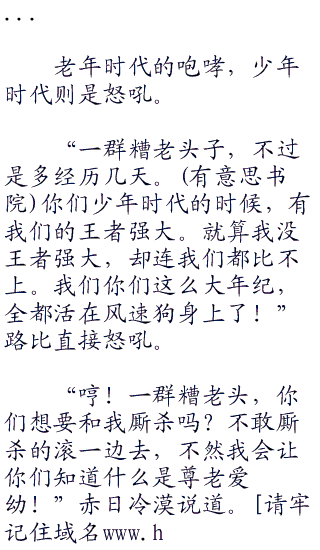 ...
老年时代的咆哮，少年
时代则是怒吼。
“一群糟老头子，不过
是多经历几天。(有意思书
院)你们少年时代的时候，有
我们的王者强大。就算我没
王者强大，却连我们都比不
上。我们你们这么大年纪，
全都活在风速狗身上了！”
路比直接怒吼。
“哼！一群糟老头，你
们想要和我厮杀吗？不敢厮
杀的滚一边去，不然我会让
你们知道什么是尊老爱
幼！”赤日冷漠说道。[请牢
记住域名www.h